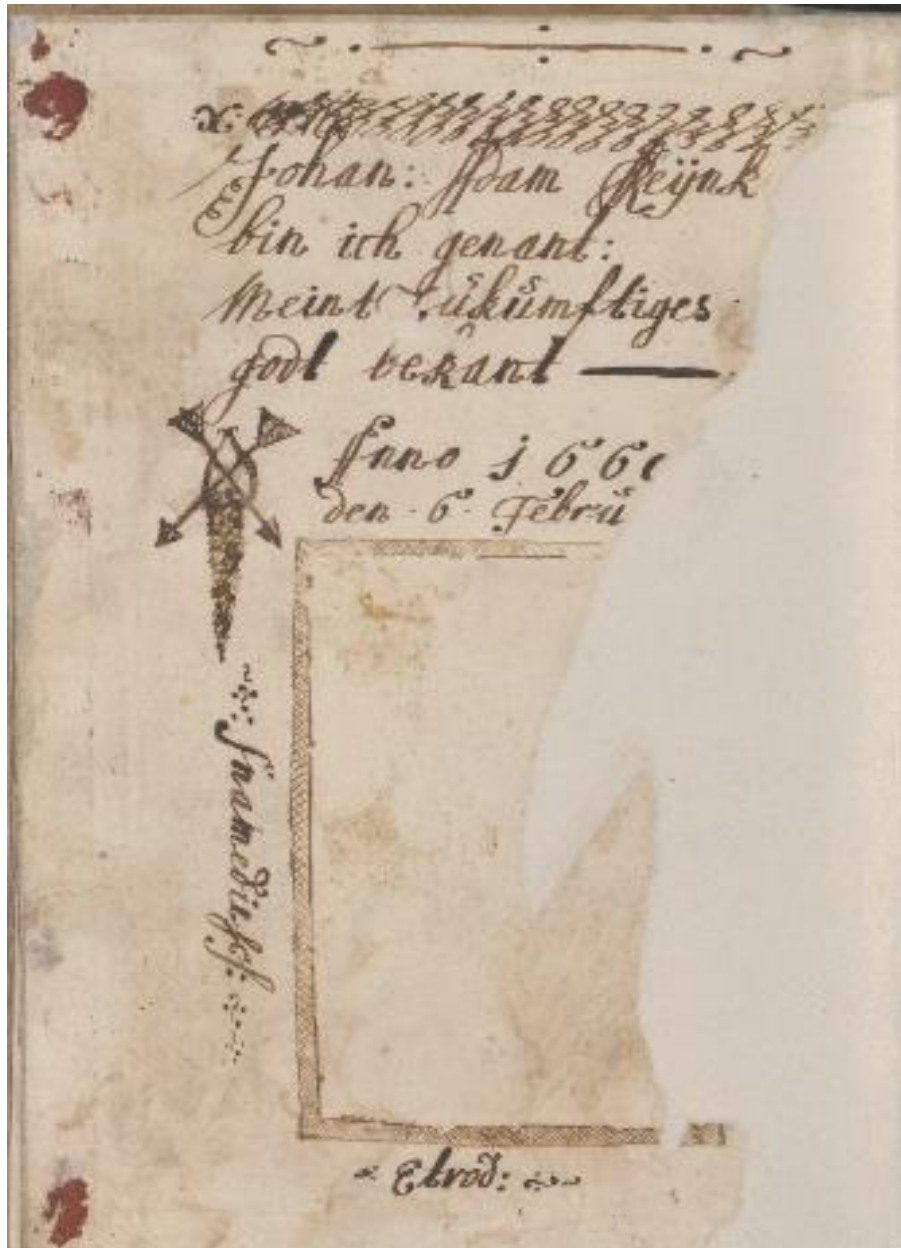 Johan: Adam Reÿnk
bin ich genant:
Meint ukumftiges
godt bekant
Anno 166
den 6 Febru
Elrod: